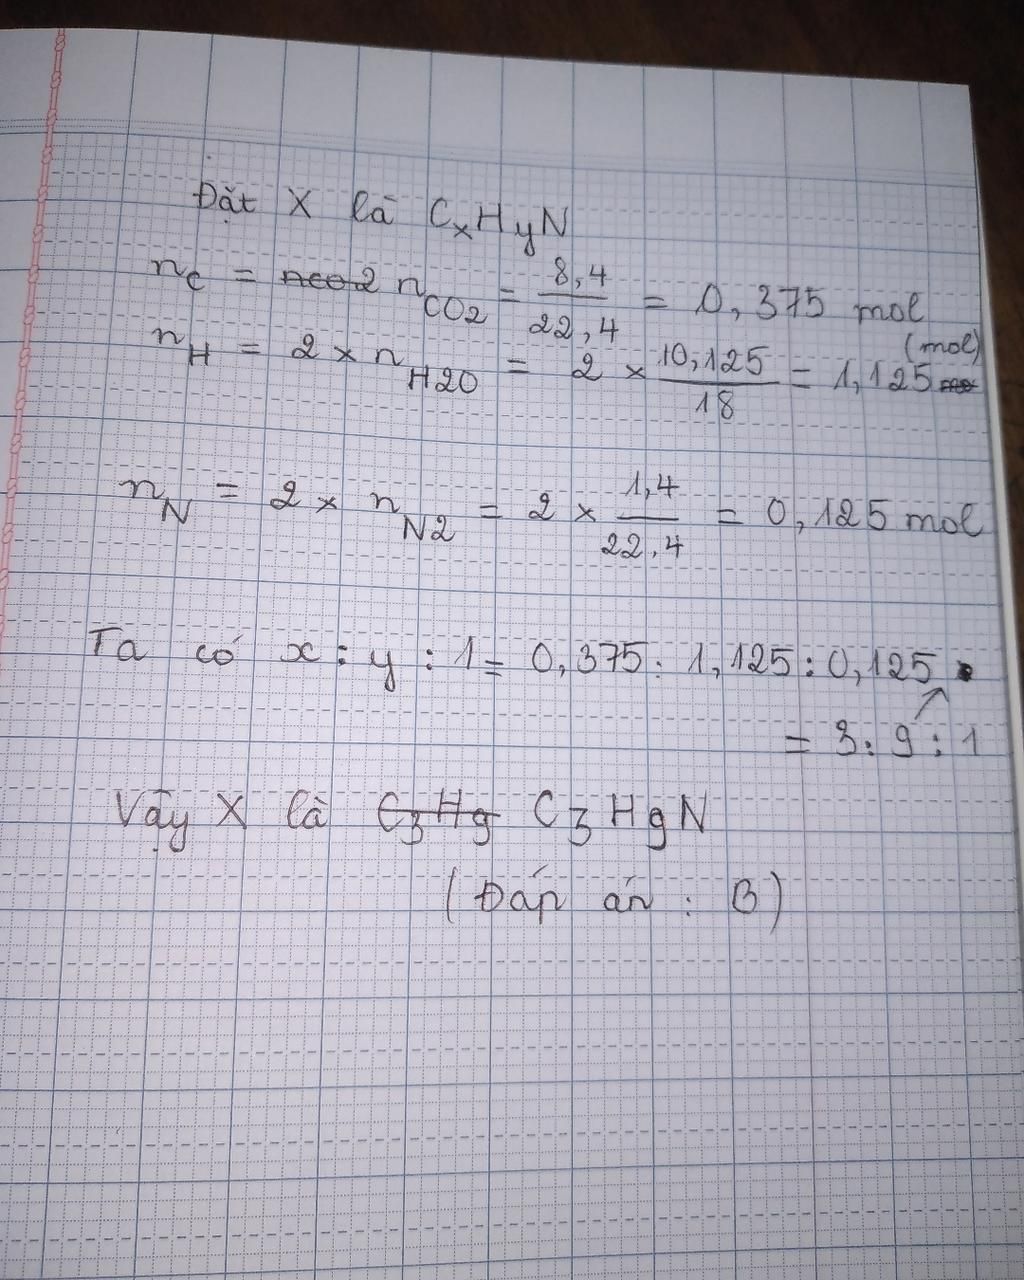 Đặt X là CxHyN
nC = nCO2 nCO2 = 8,4/22,4 = 0,375 mol
nH = 2 × nH2O = 2 × 10,125/18 = 1,125 (mol)
nN = 2 × nN2 = 2 × 1,4/22,4 = 0,125 mol
Ta có x : y : 1 = 0,375 : 1,125 : 0,125
= 3 : 9 : 1
Vậy X là C3H9 C3H9N
(Đáp án : B)